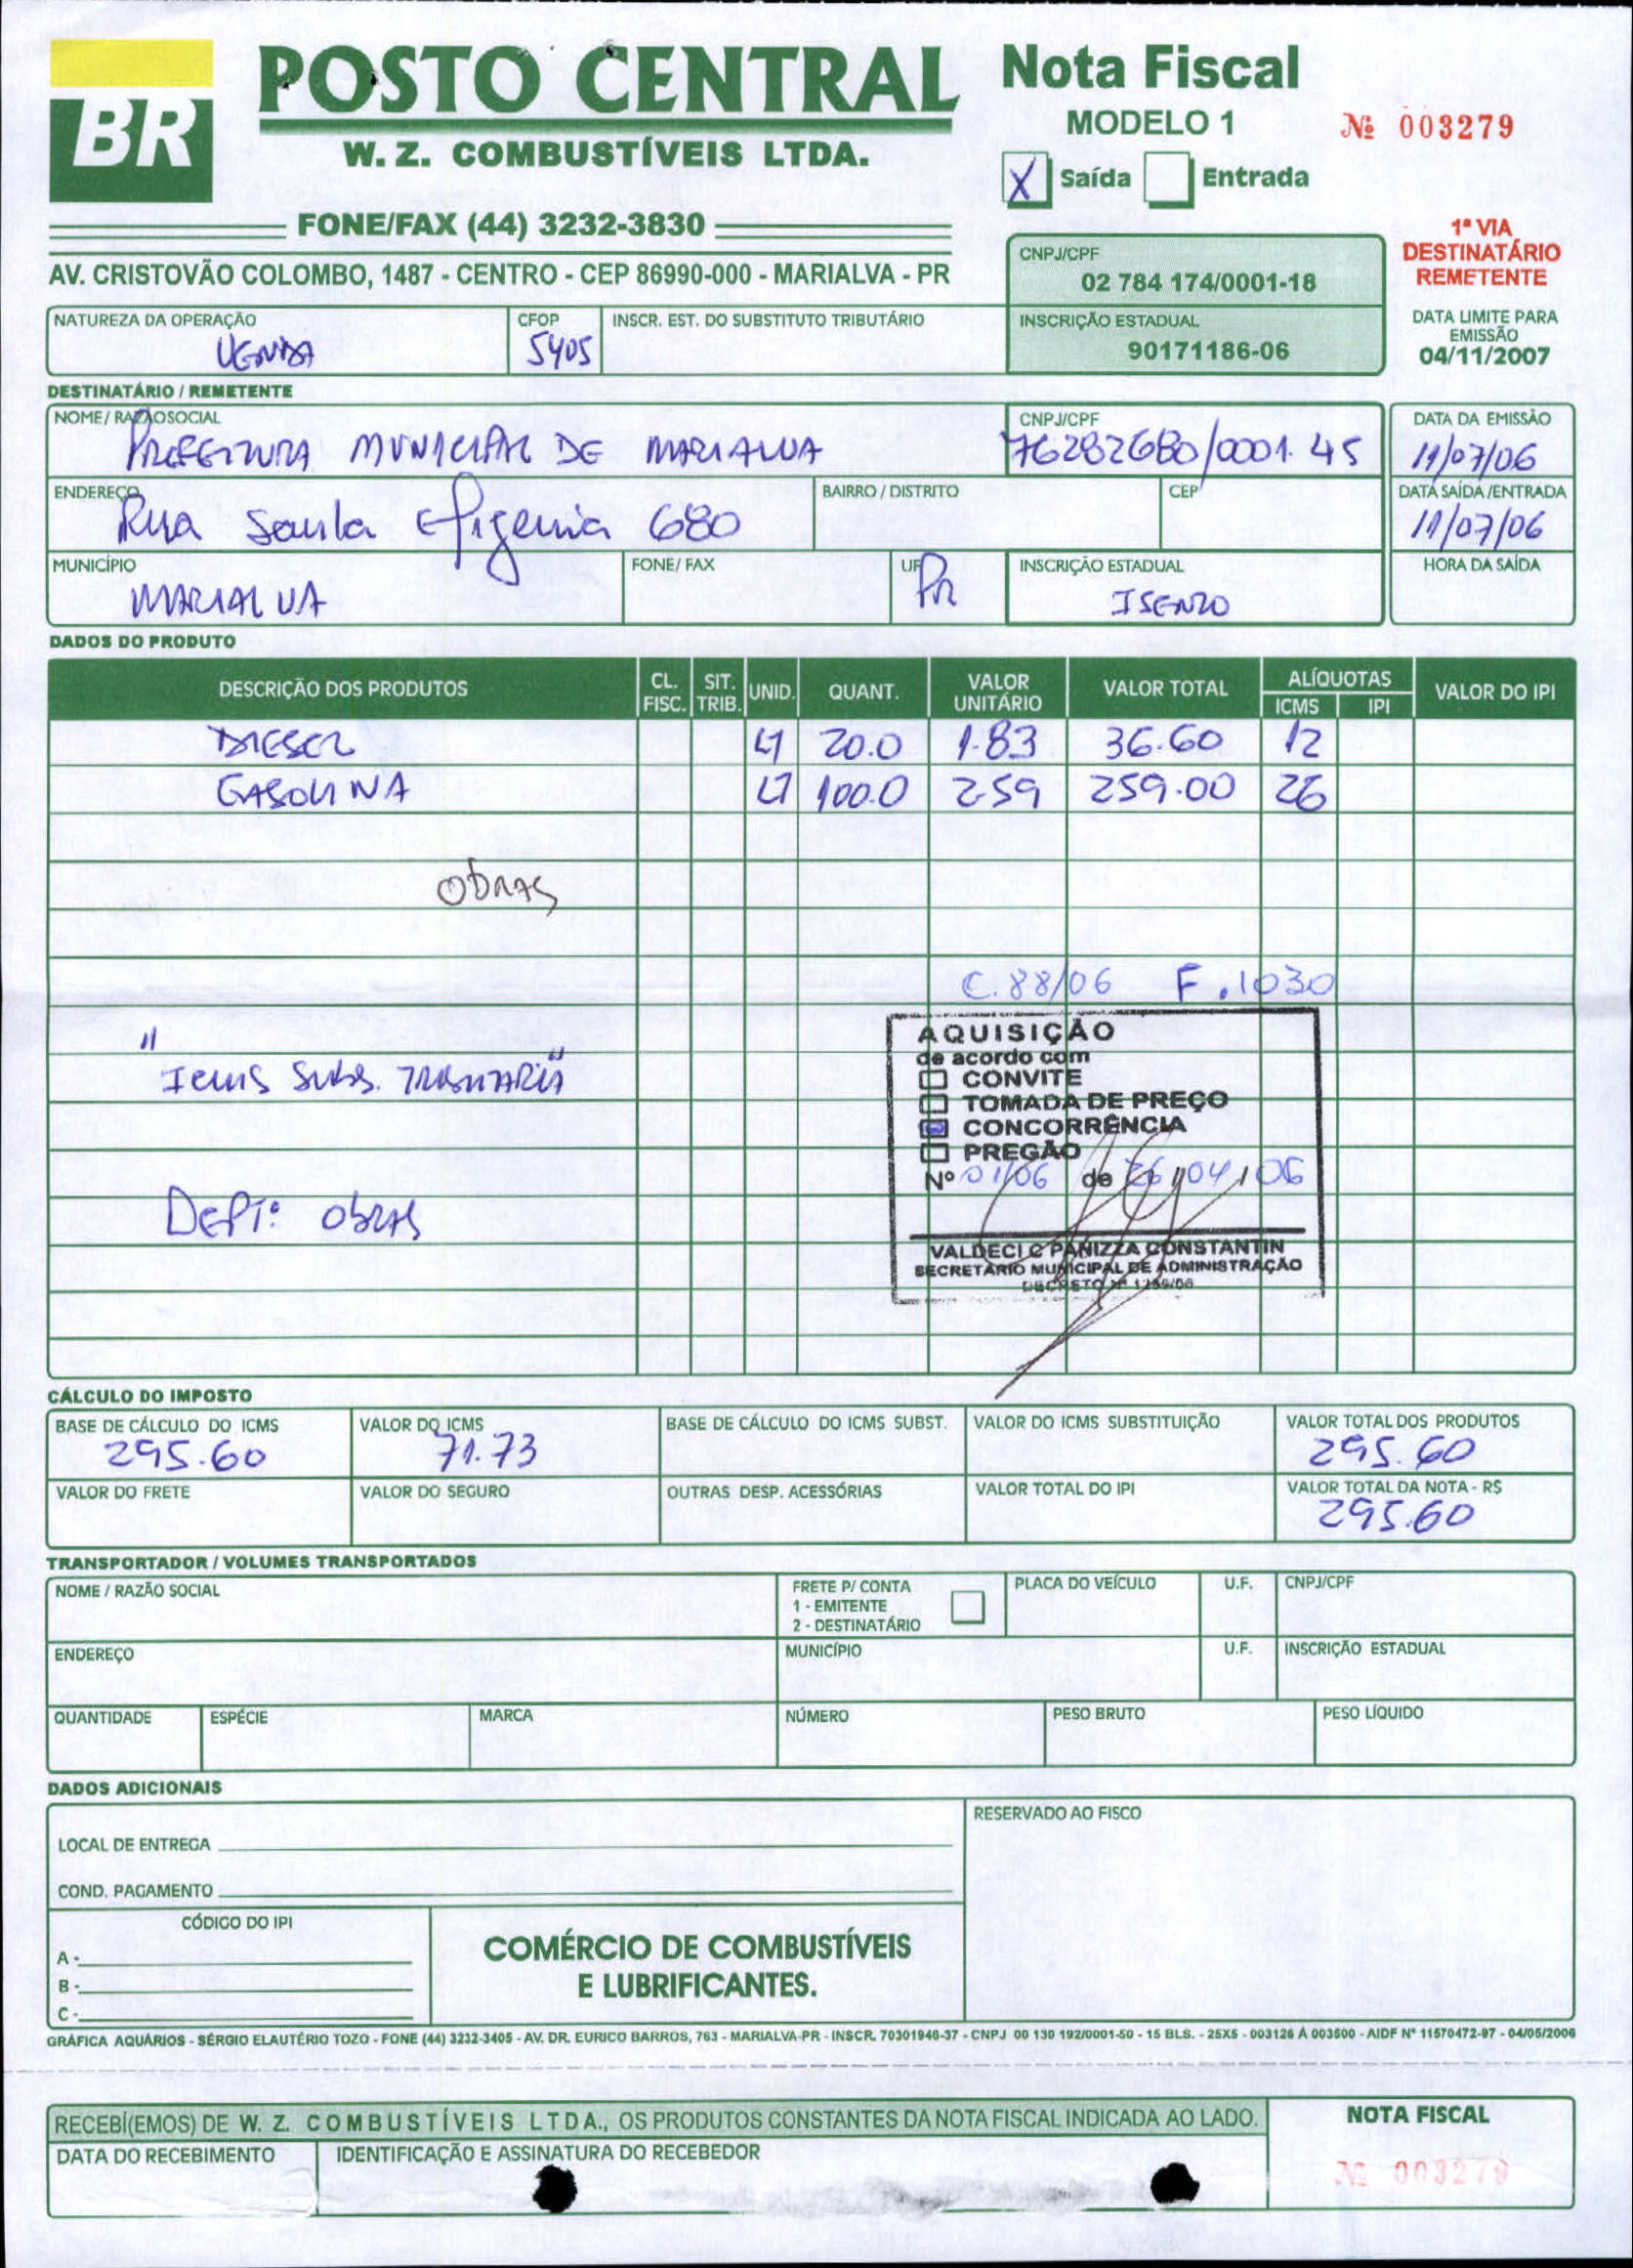 BR
POSTO CENTRAL
W. Z. COMBUSTÍVEIS LTDA.
FONE/FAX (44) 3232-3830
AV. CRISTOVÃO COLOMBO, 1487 - CENTRO - CEP 86990-000 - MARIALVA - PR
Nota Fiscal
MODELO 1
Nº 003279
X Saída Entrada
CNPJ/CPF
02 784 174/0001-18
INSCRIÇÃO ESTADUAL
90171186-06
1ª VIA
DESTINATÁRIO
REMETENTE
DATA LIMITE PARA
EMISSÃO
04/11/2007
NATUREZA DA OPERAÇÃO CFOP INSCR. EST. DO SUBSTITUTO TRIBUTÁRIO
VENDA 5405
DESTINATÁRIO / REMETENTE
NOME/ RAZÃO SOCIAL CNPJ/CPF DATA DA EMISSÃO
PREFEITURA MUNICIPAL DE MARIALVA 76282680/0001.45 11/07/06
ENDEREÇO BAIRRO / DISTRITO CEP DATA SAÍDA/ENTRADA
Rua Santa Efigenia 680 11/07/06
MUNICÍPIO FONE/ FAX UF INSCRIÇÃO ESTADUAL HORA DA SAÍDA
MARIALVA PR ISENTO
DADOS DO PRODUTO
DESCRIÇÃO DOS PRODUTOS CL. FISC. SIT. TRIB. UNID. QUANT. VALOR UNITÁRIO VALOR TOTAL ALÍQUOTAS ICMS IPI VALOR DO IPI
DIESEL LT 20.0 1.83 36.60 12
GASOLINA LT 100.0 2.59 259.00 26
OBRAS
C. 88/06 F. 1030
"ICMS SUBS. TRIBUTARIA"
DEPT: OBRAS
AQUISIÇÃO
de acordo com
CONVITE
TOMADA DE PREÇO
CONCORRÊNCIA
PREGÃO
Nº 01/06 de 26/04/06
VALDECI C PANIZZA CONSTANTIN
SECRETARIO MUNICIPAL DE ADMINISTRAÇÃO
CÁLCULO DO IMPOSTO
BASE DE CÁLCULO DO ICMS VALOR DO ICMS BASE DE CÁLCULO DO ICMS SUBST. VALOR DO ICMS SUBSTITUIÇÃO VALOR TOTAL DOS PRODUTOS
295.60 71.73 295.60
VALOR DO FRETE VALOR DO SEGURO OUTRAS DESP. ACESSÓRIAS VALOR TOTAL DO IPI VALOR TOTAL DA NOTA - R$
295.60
TRANSPORTADOR / VOLUMES TRANSPORTADOS
NOME / RAZÃO SOCIAL FRETE P/ CONTA PLACA DO VEÍCULO U.F. CNPJ/CPF
1 - EMITENTE
2 - DESTINATÁRIO
ENDEREÇO MUNICÍPIO U.F. INSCRIÇÃO ESTADUAL
QUANTIDADE ESPÉCIE MARCA NÚMERO PESO BRUTO PESO LÍQUIDO
DADOS ADICIONAIS
RESERVADO AO FISCO
LOCAL DE ENTREGA
COND. PAGAMENTO
CÓDIGO DO IPI
A -
B -
C -
COMÉRCIO DE COMBUSTÍVEIS
E LUBRIFICANTES.
GRÁFICA AQUÁRIOS - SÉRGIO ELAUTÉRIO TOZO - FONE (44) 3232-3405 - AV. DR. EURICO BARROS, 763 - MARIALVA-PR - INSCR. 70301946-37 - CNPJ 00 130 192/0001-50 - 15 BLS. - 25X5 - 003126 À 003500 - AIDF Nº 11570472-97 - 04/05/2006
RECEBI(EMOS) DE W. Z. COMBUSTÍVEIS LTDA., OS PRODUTOS CONSTANTES DA NOTA FISCAL INDICADA AO LADO.
DATA DO RECEBIMENTO IDENTIFICAÇÃO E ASSINATURA DO RECEBEDOR
NOTA FISCAL
Nº 003279